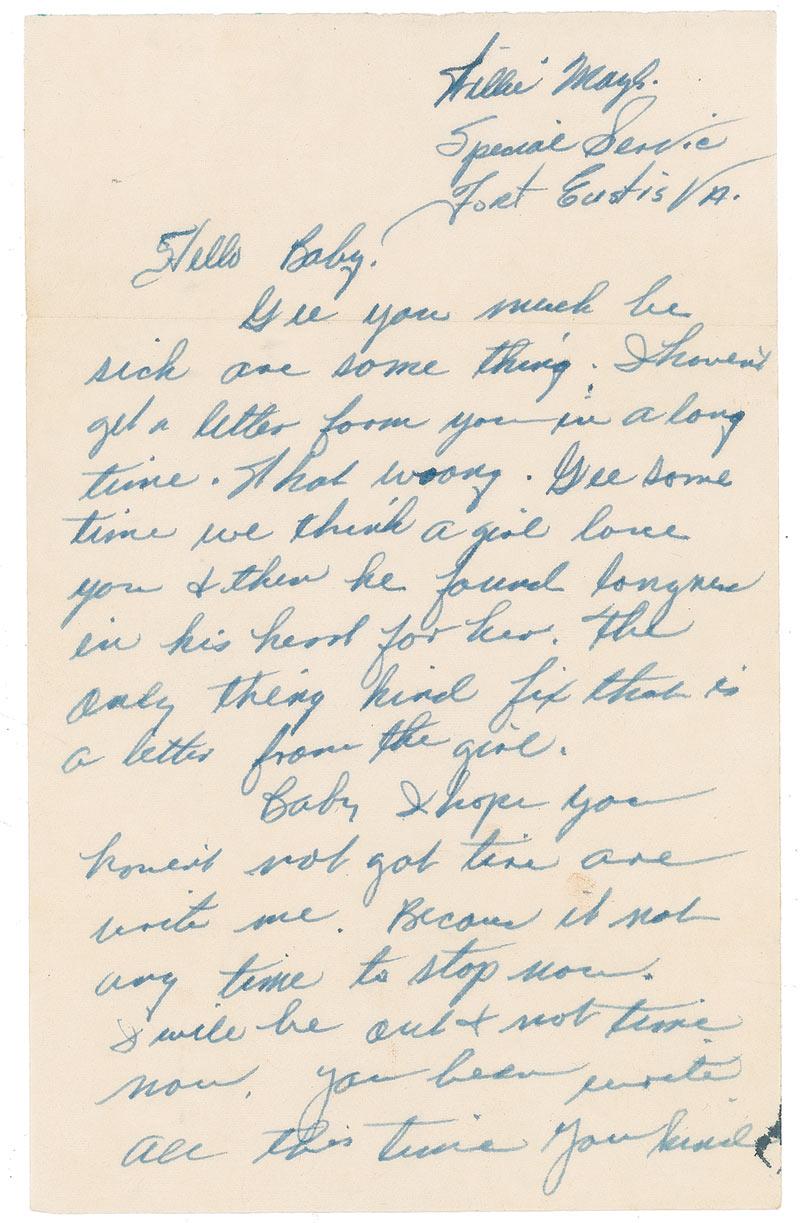 Willie Mays.
Special Servic
Fort Eustis VA.
Hello Baby.
Gee you much be
sick are some thing. I haven't
get a letter form you in a long
time. That wrong. Gee some
time we think a girl love
you & then he found
in his heart for her. The
only thing kind fix that is
a letter from the girl.
Baby I hope you
haven't not got tire are
write me. Becaus it not
any time to stop now.
I will be out & not time
now. You been write
all this time You kind